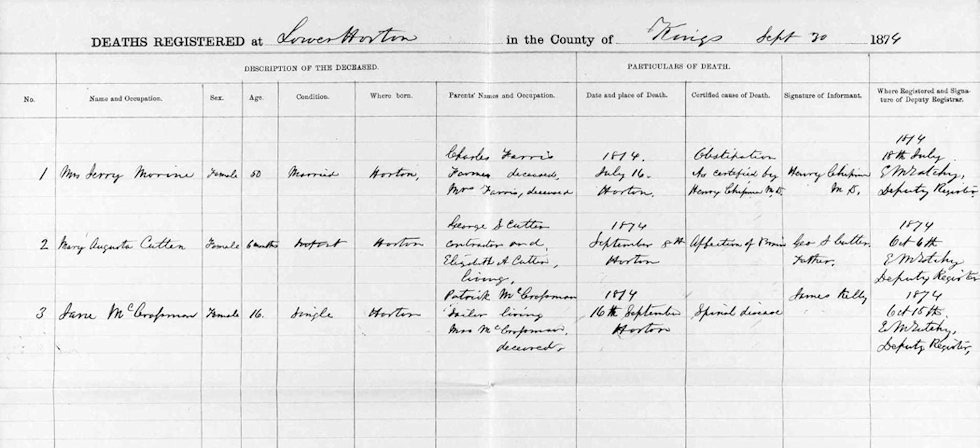 DEATHS REGISTERED at Lower Horton in the County of Kings Sept 30 1874
DESCRIPTION OF THE DECEASED. PARTICULARS OF DEATH.
No. Name and Occupation. Sex. Age. Condition. Where born. Parents' Names and Occupation. Date and place of Death. Certified cause of Death. Signature of Informant. Where Registered and Signature of Deputy Registrar.
1874
Charles Farris 1874. Obstipation 18th July
1 Mrs Jerry Morine Female 50 Married Horton, Farmer deceased, July 16. As certified by Henry Chipman
Mrs Farris, deceased Horton. Henry Chipman M.D. M.D. Deputy Register
George S Cutten 1874 1874
2 Mary Augusta Cutten Female 6 months Infant Horton contractor and, September 8th Affection of Brain Geo S Cutten Oct 6th
Elizabeth A Cutten, Horton Father.
living, Deputy Register
Patrick McCrossman 1874 James Kelly 1874
3 Jane McCrossman Female 16. Single Horton Tailor living 16th September Spinal disease Oct 15th
Mrs McCrossman, Horton
deceased. Deputy Register,